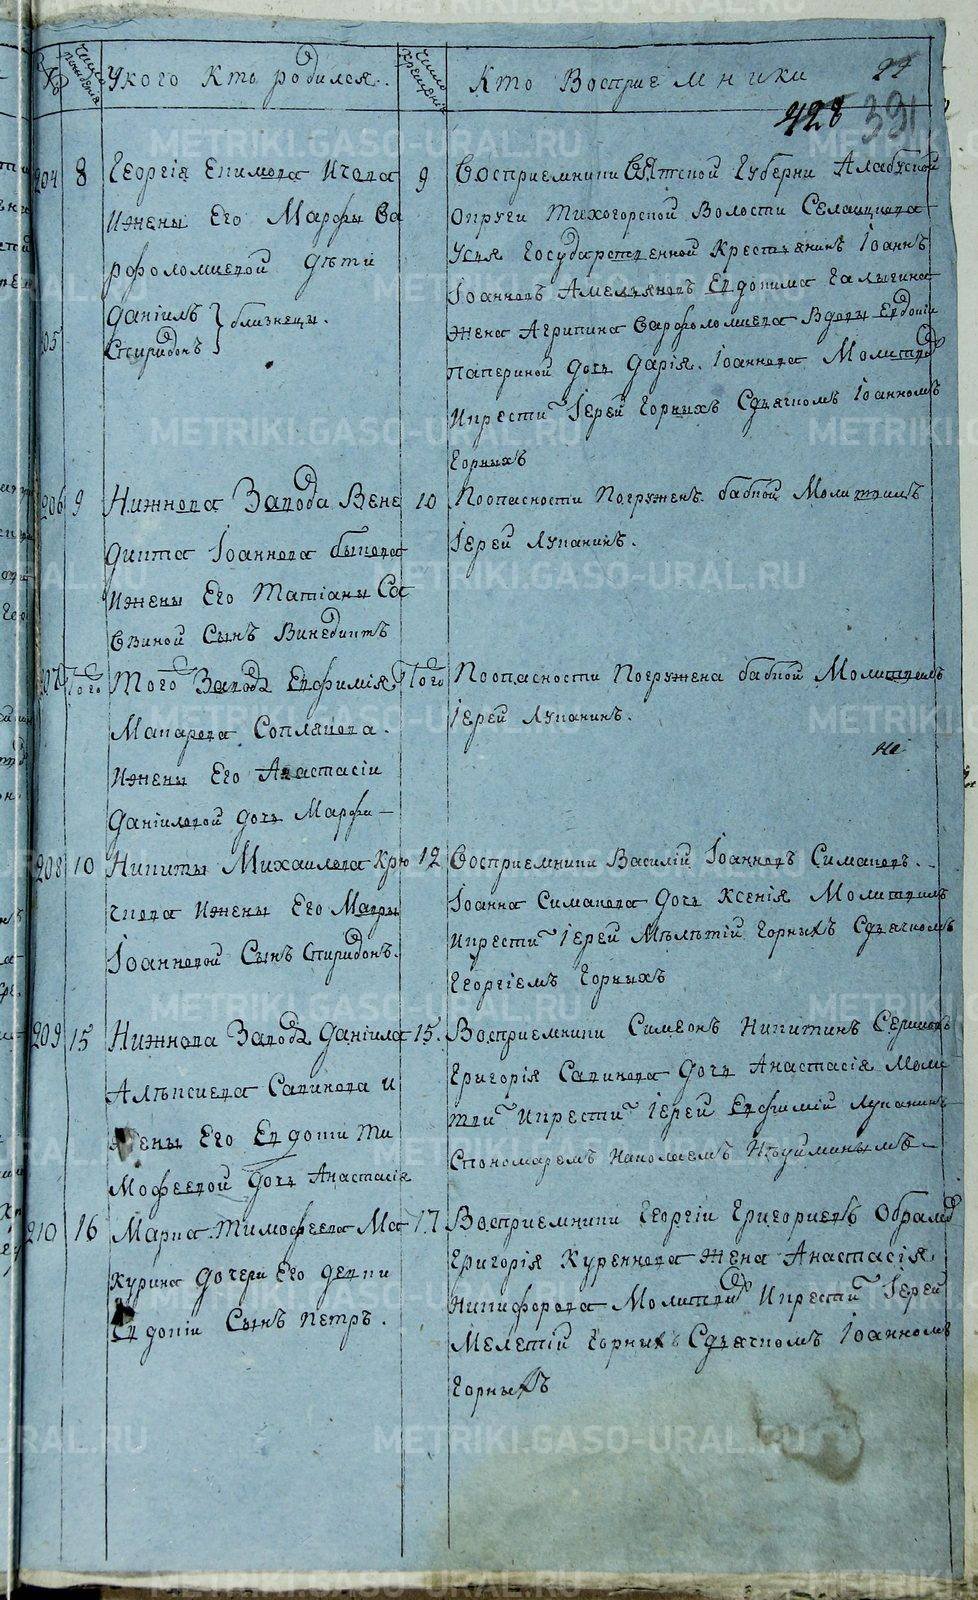 Число рождения
У кого кто родился.
Число крещения
Кто Восприемники
22
428
391
204
8
Георгія Епимова
И жены Его Марфы Ва
рфоломиевой дѣти
Даніилъ
205
Спиридонъ
близнецы.
9
Восприемники Вятской Губерни Алабуской
Округи Тихогорской Волости
Государственной Крестьянинъ Іоаннъ
Іоанновъ Амельяновъ Евдокима Галыгина
жена Агрипина Варфоломиева Вдовы Евдокіи
дочь Дарія. Іоаннова Молитвов
И крести Іерей Горныхъ Сдьячкомъ Іоанномъ
Горныхъ
206
9
Нижнева Завода Вене
дикта Іоаннова быкова
И жены Его Татіаны Са
виной Сынъ Винедиктъ
10
По опасности Погруженъ бабкой Молитвилъ
Іерей Лупанинъ.
207
Того
Того Завода Евфимія
Макарова Соплякова.
И жены Его Анастасіи
Даніиловой дочь Марфа
Того
По опасности Погружена бабкой Молитвилъ
Іерей Лупанинъ.
208
10
Никиты Михаилова Крю
чкова И жены Его Мавры
Іоанновой Сынъ Спиридонъ.
12
Восприемники Василій Іоанновъ Симаковъ.
Іоанна Симакова дочь Ксенія Молитвилъ
И крести Іерей Мѣлѣтій Горныхъ Сдьячкомъ
Георгіемъ Горныхъ
209
15
Нижнева Завода Даніила
Алѣксиева Савинова и
жены Его Евдокіи Ти
мофеевой дочь Анастасія
15.
Восприемники Симеонъ Никитинъ
Григорія Савинова дочь Анастасія Моли
тви И крести Іерей Евфимій Лупанинъ
Спономаремъ Николаемъ
210
16
Марка Тимофеева Ма
курина дочери Его девки
Евдокіи Сынъ Петръ.
17.
Восприемники Георгіи Григориевъ
Григорія Куреннова жена Анастасія.
Никифорова Молитвов И крести Іерей
Мелетій Горныхъ Сдьячкомъ Іоанномъ
Горныхъ
METRIKI.GASO-URAL.RU